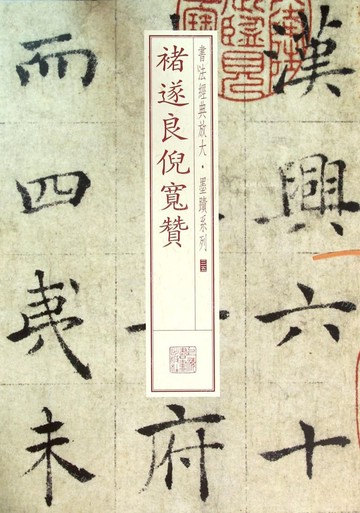 漢興六十
府
而四夷未
書法經典放大·墨蹟系列
褚遂良倪寬贊